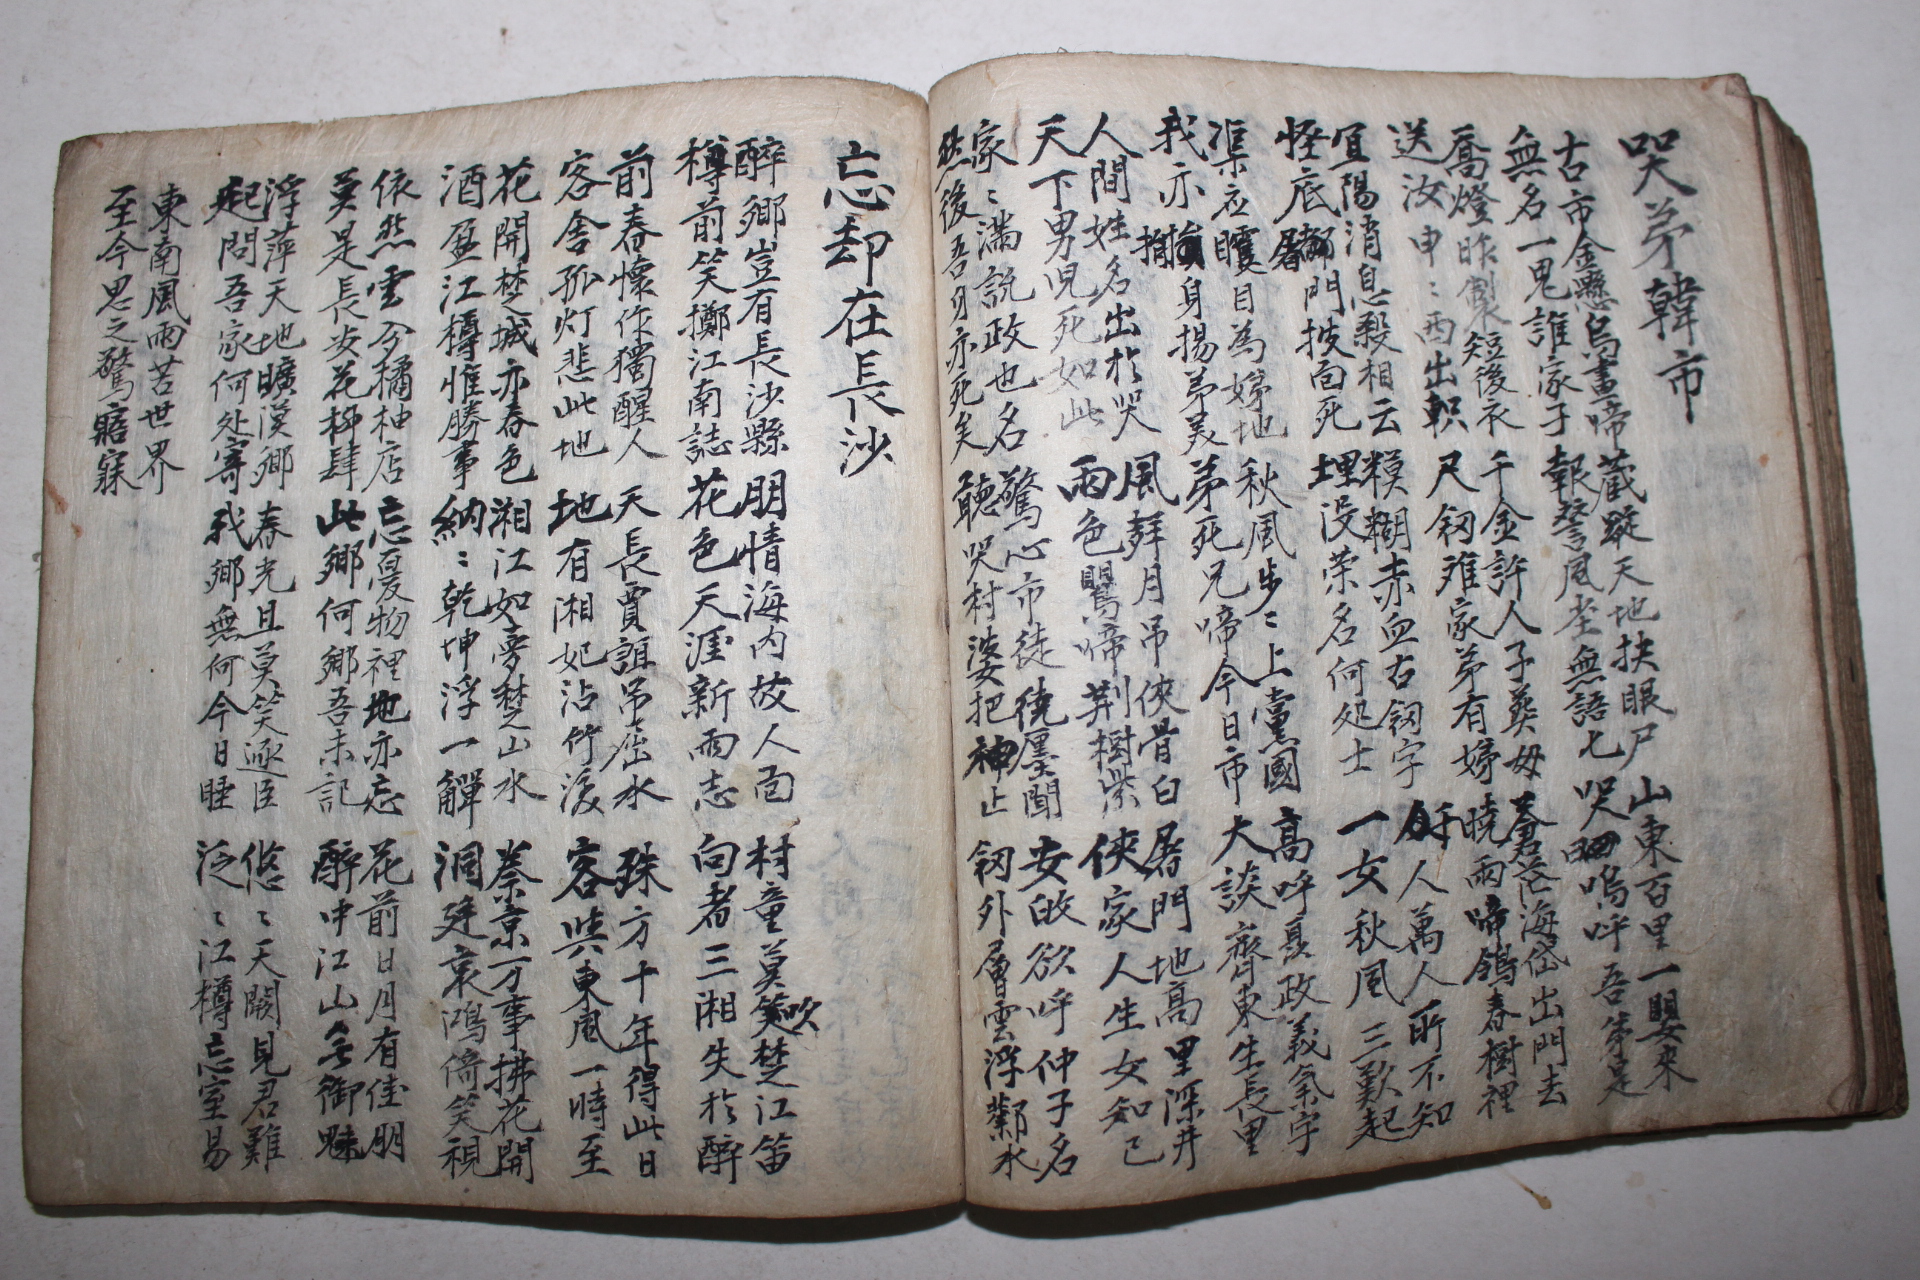 哭弟韓市
古市金懸烏晝啼 藏蹤天地抉眼尸 山東百里一嬰來
無名一鬼誰家子 報讐尼坐無語七 哭 嗚呼吾弟是
舊燈昨製短後衣 千金許人子葬母 蒼茫海岱出門去
送汝申〻西出軹 尺釼難家弟有婷 曉雨啼鴒春樹裡
宜陽消息殺相云 糢糊赤血右釼字 千人萬人所不知
怪底屠門披面死 埋沒荣名何処士 一女秋風三歎起
渠应瞜目為婷地 秋風步〻上黨國 高呼聂政義氣宇
我亦捐身揚弟美 弟死兄啼今日市 大談齊東生長里
人間姓名出於哭 風辞月吊俠骨白 屠門地高里深井
天下男児死如此 雨色鵑啼荆樹紫 俠家人生女知己
家〻満説政也名 驚心市徒徳廛聞 安的欲呼仲子名
然後吾身亦死矣 聽哭村婆把神止 釼外層雲浮鄴水
忘却在長沙
醉郷豈有長沙縣 朋情海内故人面 村童莫笑吹楚江笛
樽前笑擲江南誌 花色天涯新雨志 向者三湘失於醉
前春懷作獨醒人 天長賈誼吊屈水 殊方十年得此日
客舍孤灯悲此地 地有湘妃沾竹淚 客興東風一時至
花開楚城亦春色 湘江如夢楚山水 秦京万事拂花開
酒盈江樽惟勝事 納〻乾坤浮一觶 洞廷哀鴻倚笑視
依然雲夕橘柚店 忘憂物裡地亦忘 花前日月有佳朋
莫是長安花柳肆 此鄉何鄉吾未記 醉中江山無御魅
浮萍天地曠漠鄉 春光且莫笑逐臣 悠〻天闕見君難
起問吾家何处寄 我鄉無何今日睡 泛〻江樽忘室易
東南風雨苦世界
至今思之驚寤寐